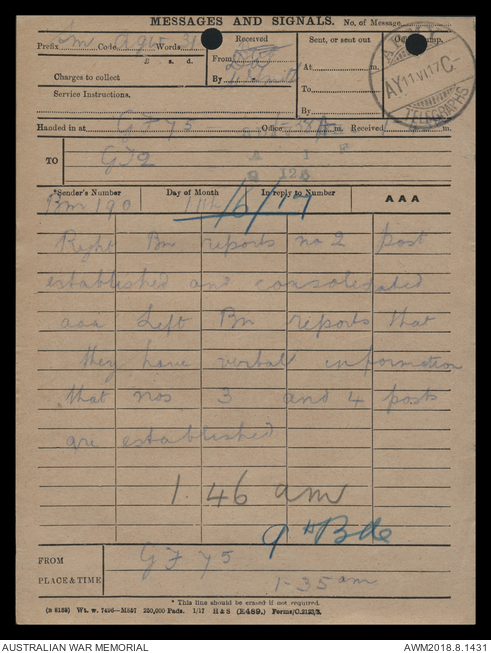 MESSAGES AND SIGNALS. No. of Message
Prefix Sm Code Words 31
Received
From
By
Sent, or sent out
At m.
To
By
Office Stamp.
£ s. d.
Charges to collect
Service Instructions.
AY 11 VI 17 C-
TELEGRAPHS
Handed in at GFY5 Office m. Received m.
TO GJ2
*Sender's Number Day of Month In reply to Number AAA
Bm 190 11th 11/6/17
Right Bn reports no 2 post
established and consolidated
aaa Left Bn reports that
they have verbal information
that nos 3 and 4 posts
are established
1.46 am
9th Bde
FROM GFY5
PLACE & TIME 1-35 am
* This line should be erased if not required.
(B 8158) Wt. w. 7496—M857 250,000 Pads. 1/17 H & S (E489.) Forms/C.2121/3.
AUSTRALIAN WAR MEMORIAL AWM2018.8.1431